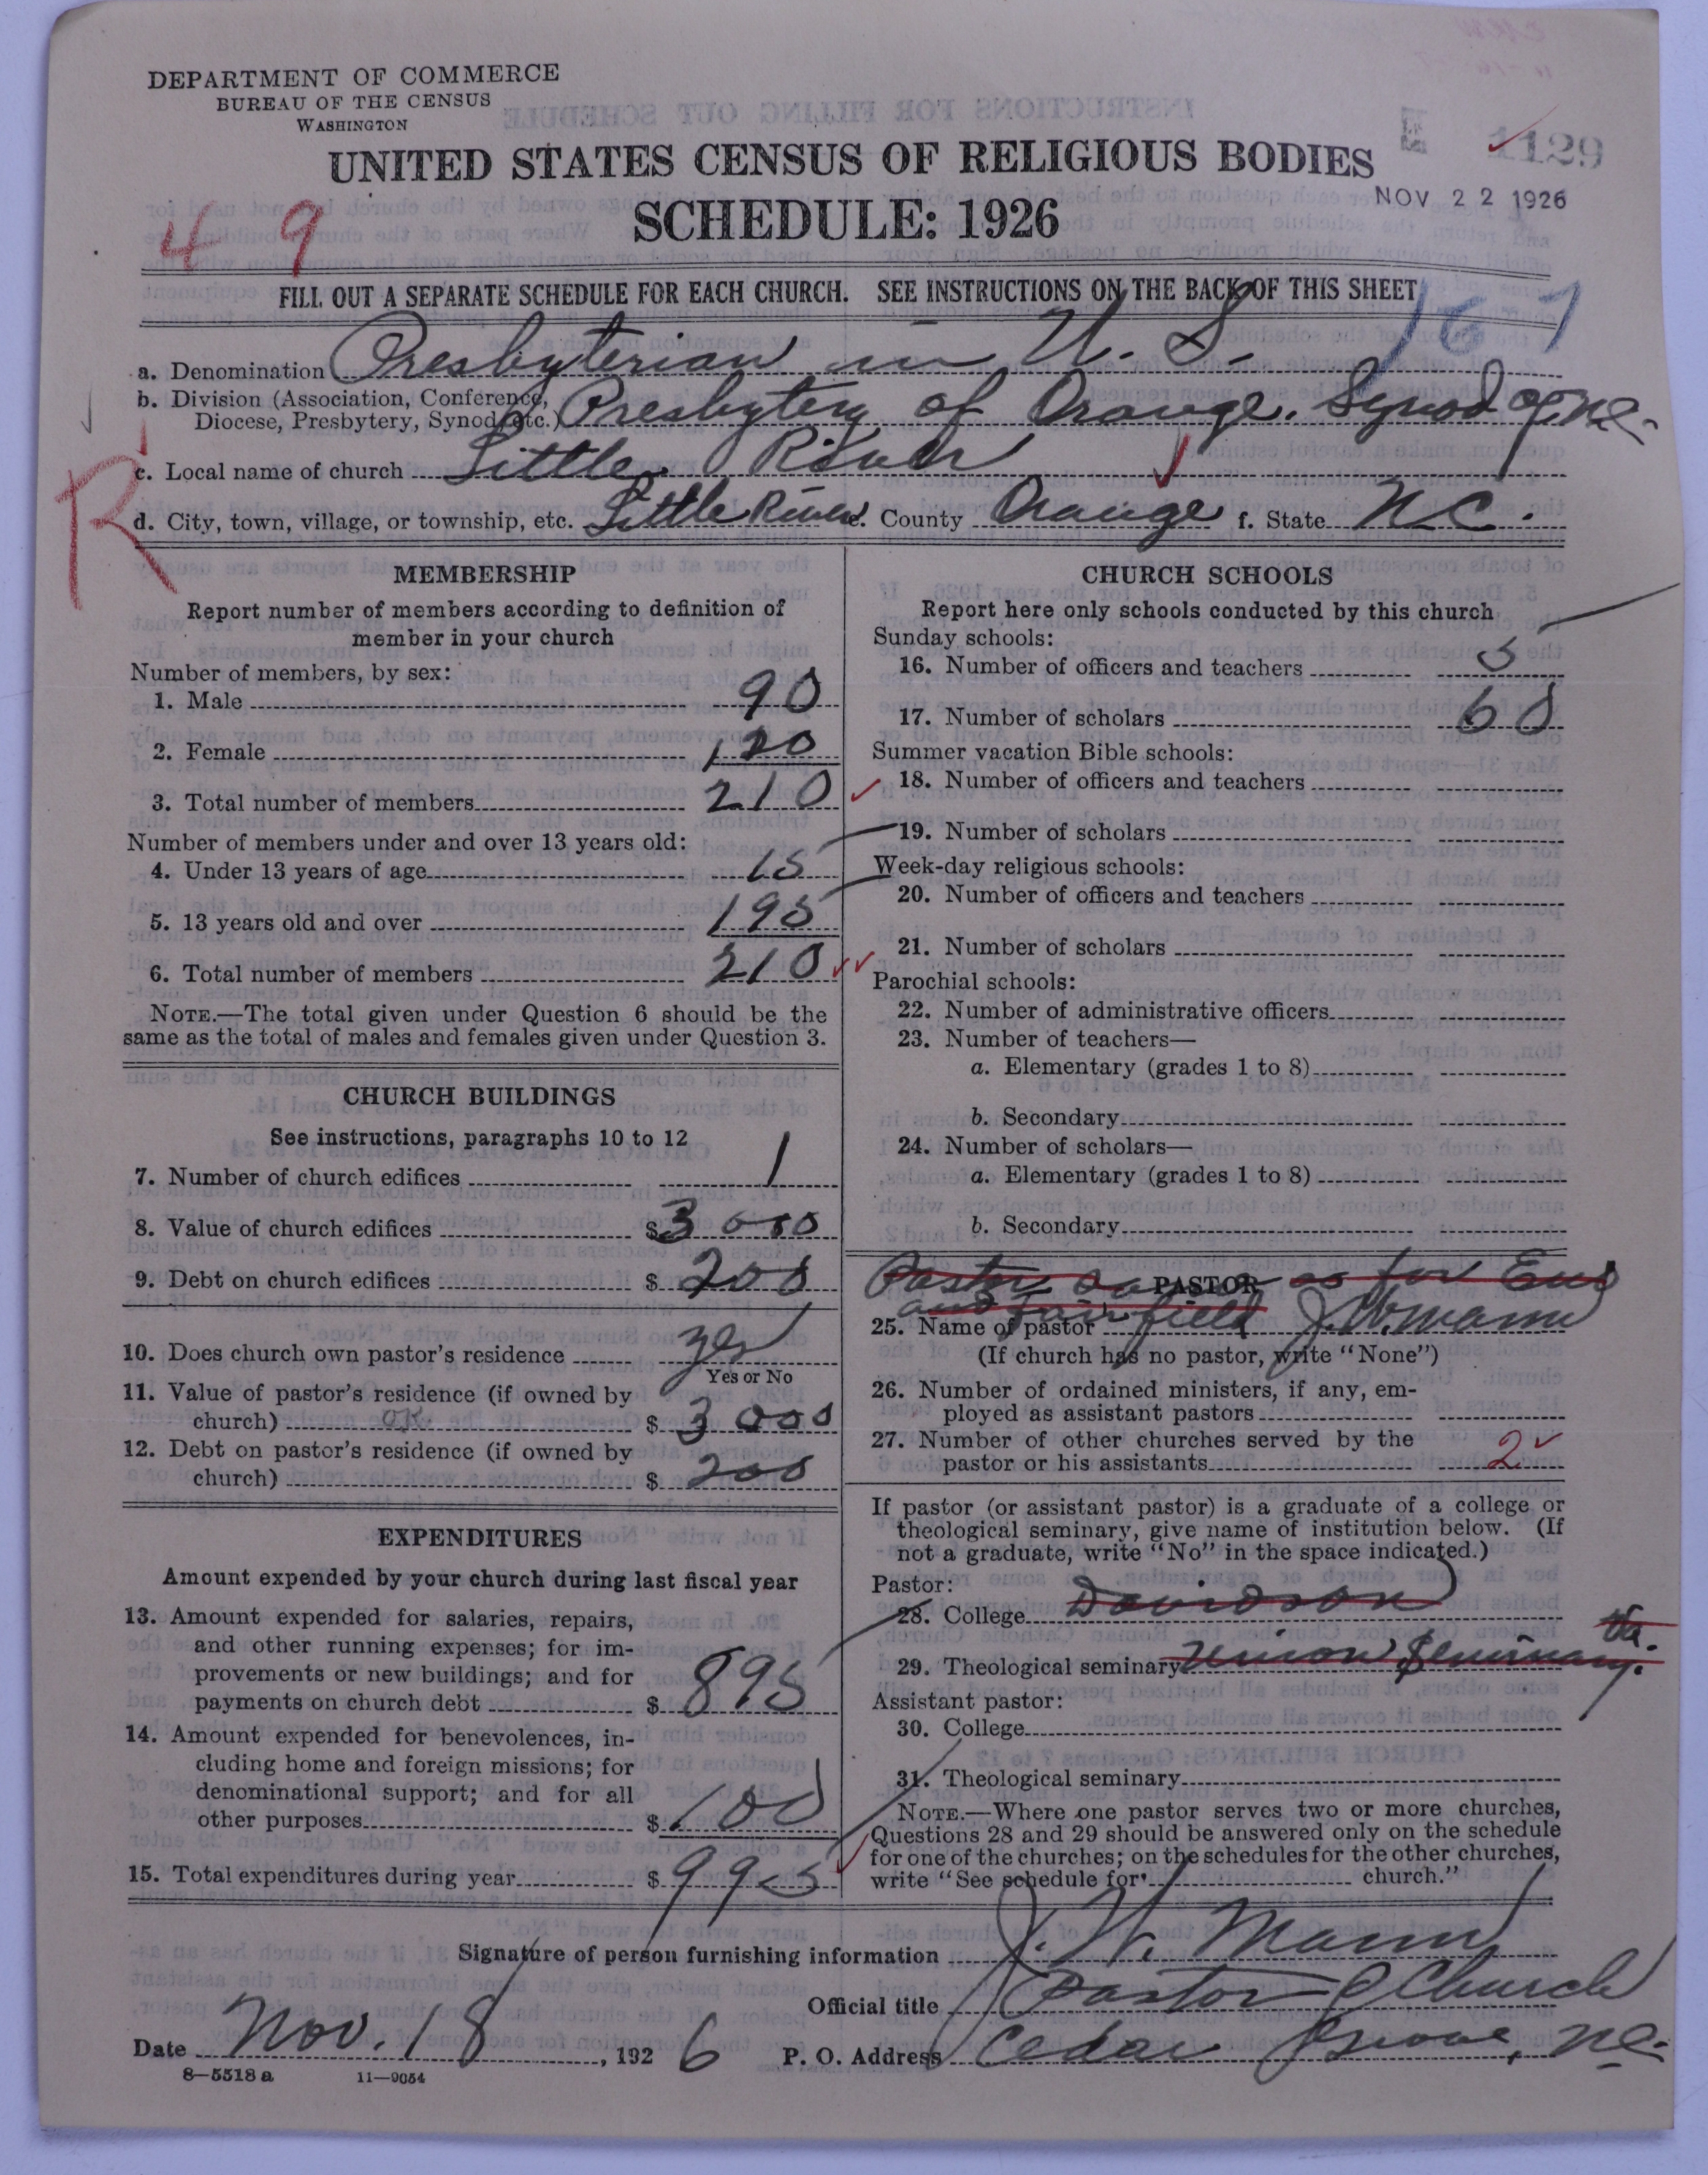 DEPARTMENT OF COMMERCE
BUREAU OF THE CENSUS
WASHINGTON
UNITED STATES CENSUS OF RELIGIOUS BODIES
1129
NOV 22 1926
SCHEDULE: 1926
4 9
FILL OUT A SEPARATE SCHEDULE FOR EACH CHURCH. SEE INSTRUCTIONS ON THE BACK OF THIS SHEET
167
a. Denomination Presbyterian in U. S.
b. Division (Association, Conference, Diocese, Presbytery, Synod, etc.) Presbytery of Orange. Synod of N.C.
c. Local name of church Little River
R
d. City, town, village, or township, etc. Little River e. County Orange f. State N.C.
MEMBERSHIP
Report number of members according to definition of
member in your church
Number of members, by sex:
1. Male 90
2. Female 120
3. Total number of members 210
Number of members under and over 13 years old:
4. Under 13 years of age 15
5. 13 years old and over 195
6. Total number of members 210
NOTE.—The total given under Question 6 should be the
same as the total of males and females given under Question 3.
CHURCH BUILDINGS
See instructions, paragraphs 10 to 12
7. Number of church edifices 1
8. Value of church edifices $ 3000
9. Debt on church edifices $ 200
10. Does church own pastor's residence yes
Yes or No
11. Value of pastor's residence (if owned by
church) OK $ 3000
12. Debt on pastor's residence (if owned by
church) $ 200
EXPENDITURES
Amount expended by your church during last fiscal year
13. Amount expended for salaries, repairs,
and other running expenses; for im-
provements or new buildings; and for
payments on church debt $ 895
14. Amount expended for benevolences, in-
cluding home and foreign missions; for
denominational support; and for all
other purposes $ 100
15. Total expenditures during year $ 995
CHURCH SCHOOLS
Report here only schools conducted by this church
Sunday schools:
16. Number of officers and teachers 5
17. Number of scholars 60
Summer vacation Bible schools:
18. Number of officers and teachers
19. Number of scholars
Week-day religious schools:
20. Number of officers and teachers
21. Number of scholars
Parochial schools:
22. Number of administrative officers
23. Number of teachers—
a. Elementary (grades 1 to 8)
b. Secondary
24. Number of scholars—
a. Elementary (grades 1 to 8)
b. Secondary
Pastor same as for Eno
PASTOR
and Fairfield
25. Name of pastor J. W. Mann
(If church has no pastor, write "None")
26. Number of ordained ministers, if any, em-
ployed as assistant pastors
27. Number of other churches served by the
pastor or his assistants 2
If pastor (or assistant pastor) is a graduate of a college or
theological seminary, give name of institution below. (If
not a graduate, write "No" in the space indicated.)
Pastor:
28. College Davidson
29. Theological seminary Union Seminary. Va.
Assistant pastor:
30. College
31. Theological seminary
NOTE.—Where one pastor serves two or more churches,
Questions 28 and 29 should be answered only on the schedule
for one of the churches; on the schedules for the other churches,
write "See schedule for church."
Signature of person furnishing information J. W. Mann
Official title Pastor Church
Date Nov. 18, 1926 P. O. Address Cedar Grove, N.C.
8—5518 a 11—9054